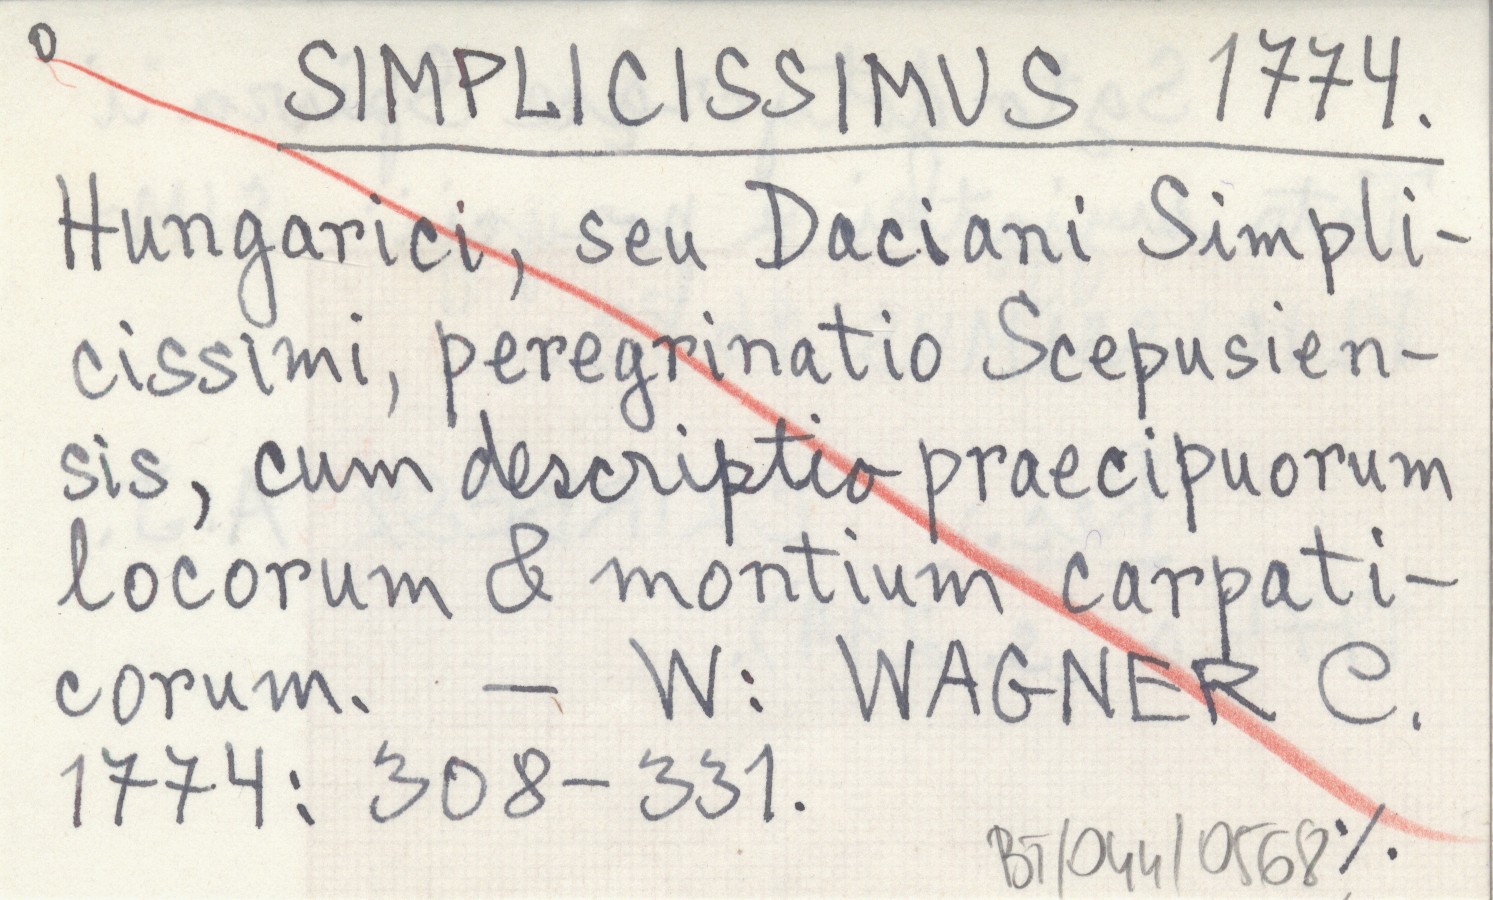 SIMPLICISSIMUS 1774.
Hungarici, seu Daciani Simpli-
cissimi, peregrinatio Scepusien-
sis, cum descriptio praecipuorum
locorum & montium carpati-
corum. – W: WAGNER C.
1774: 308–331.
BT/044/0568 ·/.